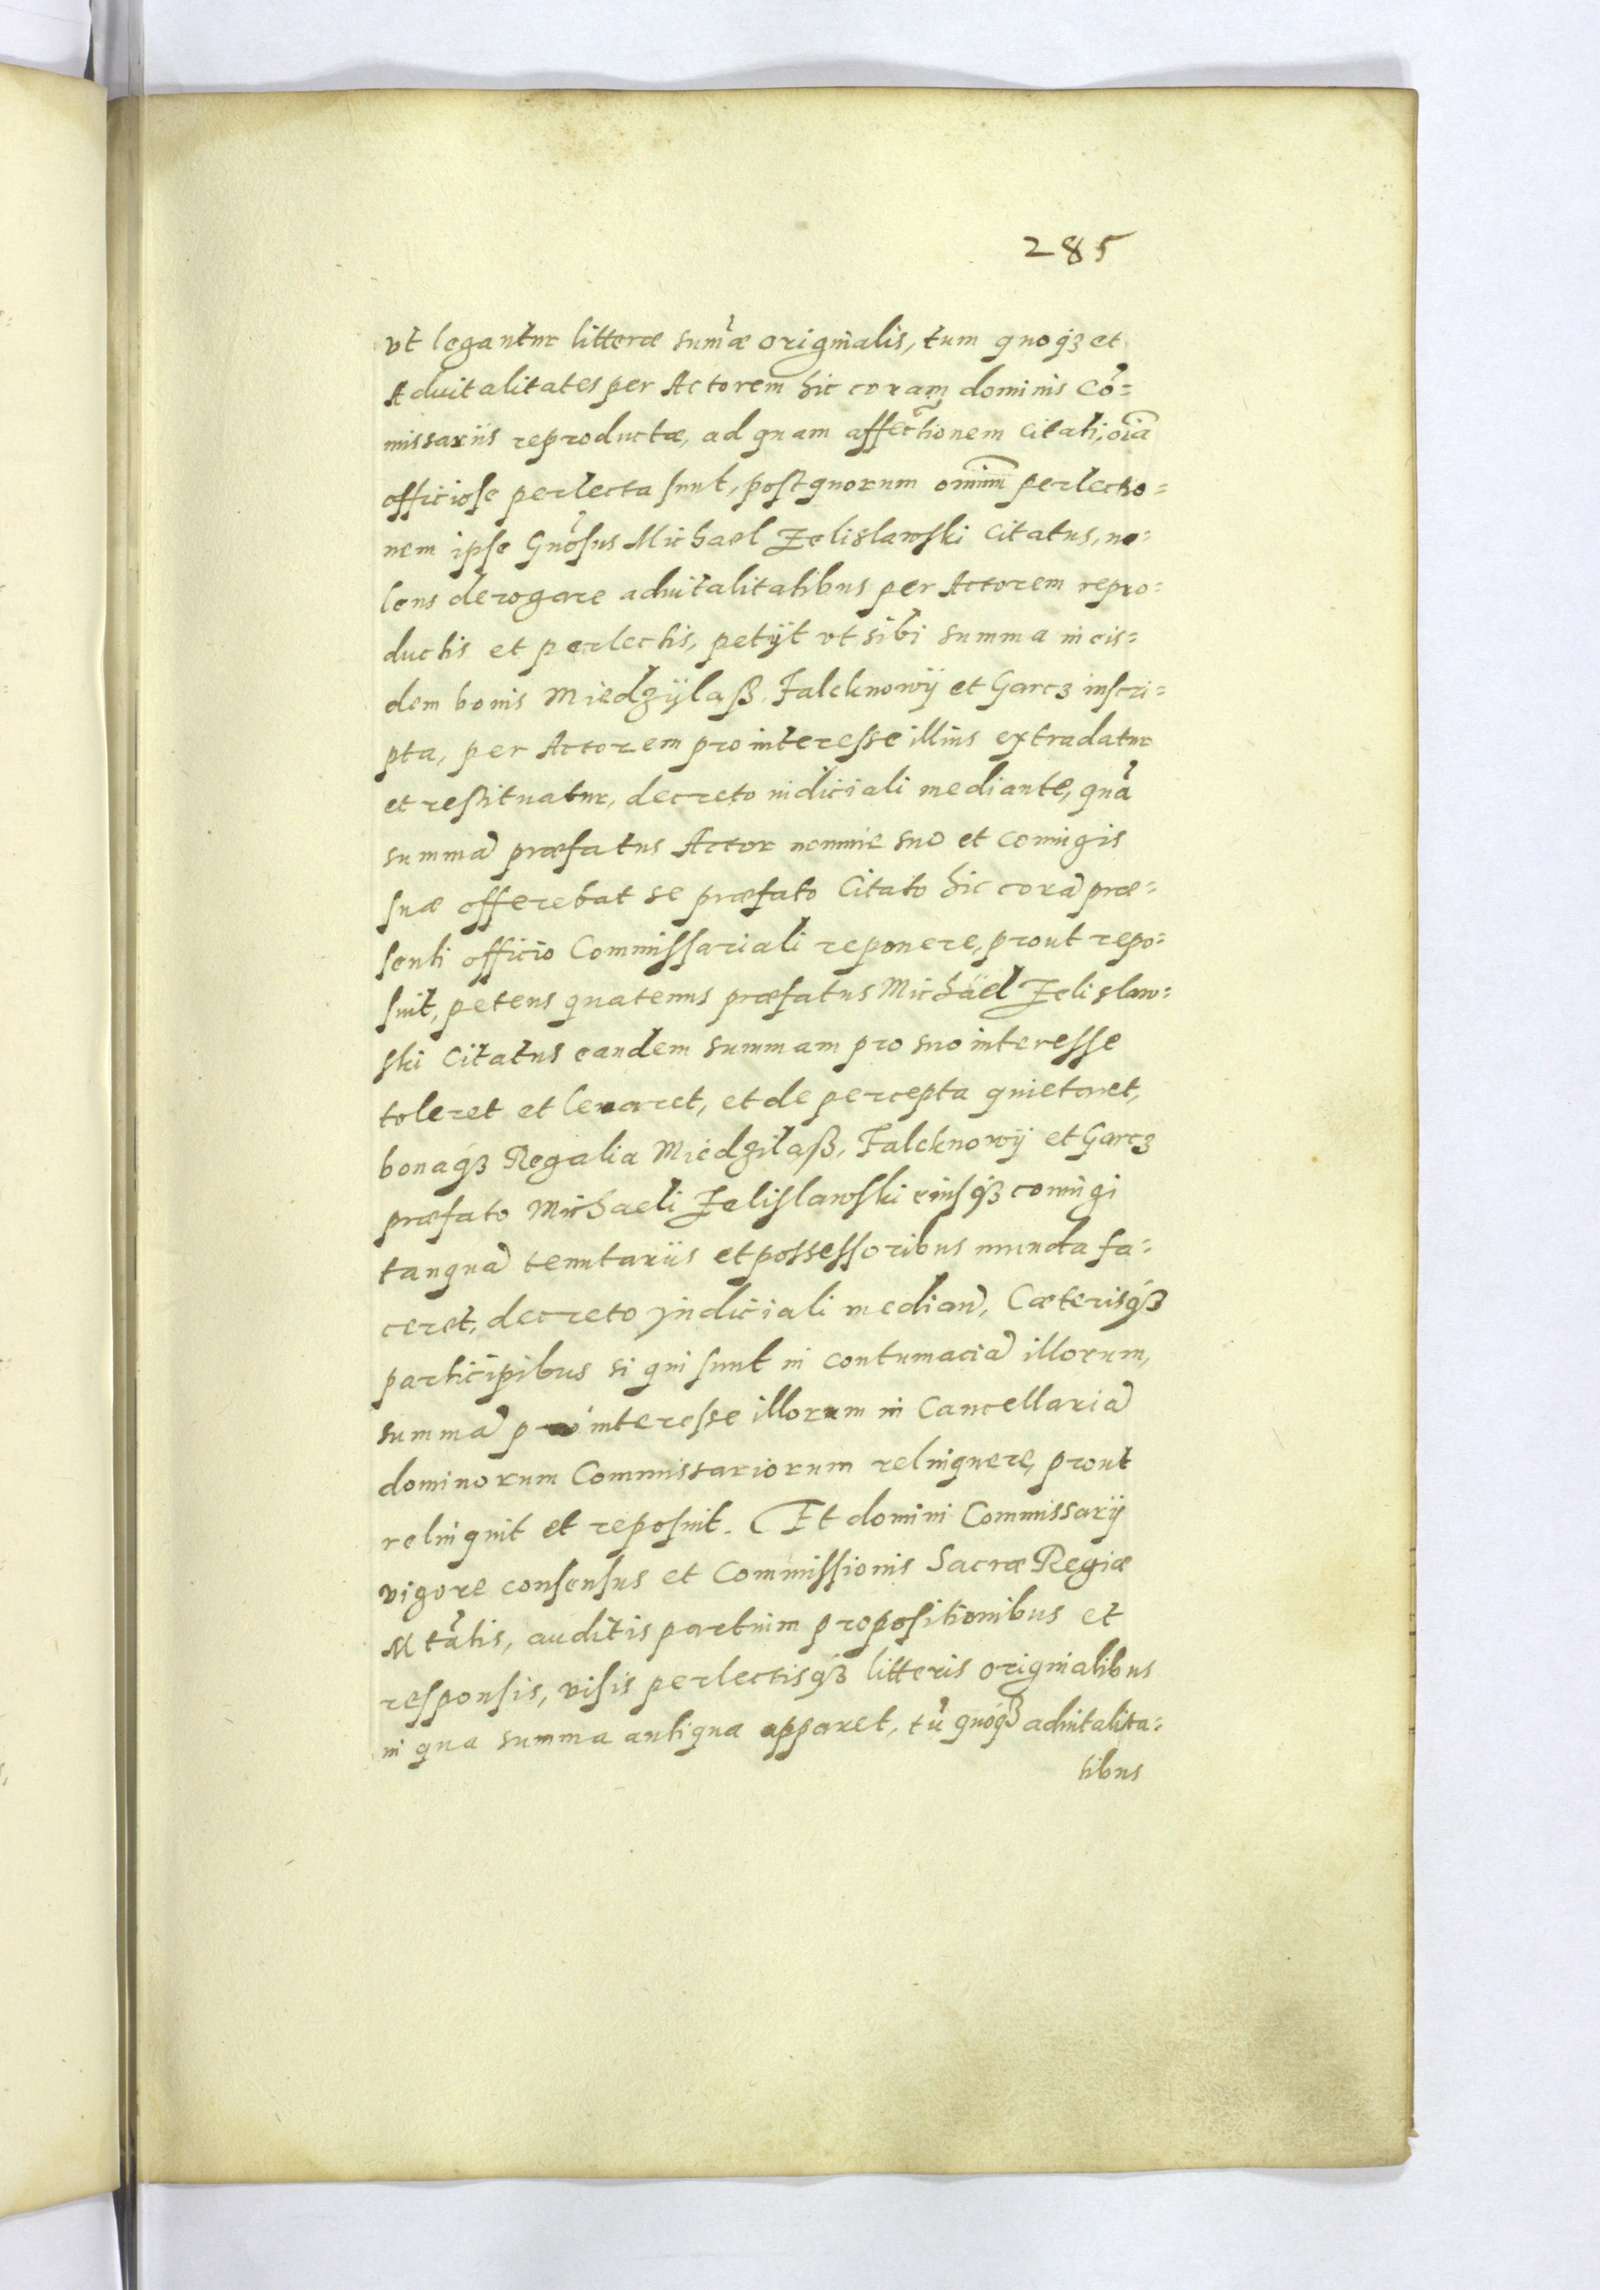 285
vt legantur litteræ sum̃æ originalis, tum quoqȝ et
Advitalitates per Actorem hic coram dominis Cõ=
missariis reproductæ, ad quam affectionem citati, oĩa
officiose perlecta sunt, post quorum omnium perlectio=
nem ipse Gñosus Michael Zelislawski Citatus, no=
lens derogare advitalitatibus per Actorem repro=
ductis et perlectis, petijt vt sibi summa in eis=
dem bonis Miedzÿlaß, Falcknowÿ et Garcz inscri=
pta, per Actorem pro interesse illius extradatur
et restituatur, decreto iudiciali mediante, quã
summã præfatus Actor nomine suo et coniugis
suæ offerebat se præfato Citato hic corã præ=
senti officio Commissariali reponere, prout repo=
suit, petens quatenus præfatus Michäel Zelislaw=
ski Citatus eandem summam pro suo interesse
tolleret et levaret, et de percepta quietaret,
bonaqȝ Regalia Miedzilaß, Falcknowÿ et Garcz
præfato Michaeli Zelislawski eiusqȝ coniugi
tanquã tenutariis et possessoribus munda fa=
ceret, decreto iudiciali mediañ, Cæterisqȝ
participibus si qui sunt in contumaciã illorum,
summã pro interesse illorum in Cancellariã
dominorum Commissariorum relinquere, prout
relinquit et reposuit. Et domini Commissarÿ
vigore consensus et Commissionis Sacræ Regiæ
Mtãtis, auditis partium propositionibus et
responsis, visis perlectisqȝ litteris originalibus
in qua summa antiqua apparet, tũ quoqȝ advitalita=
tibus